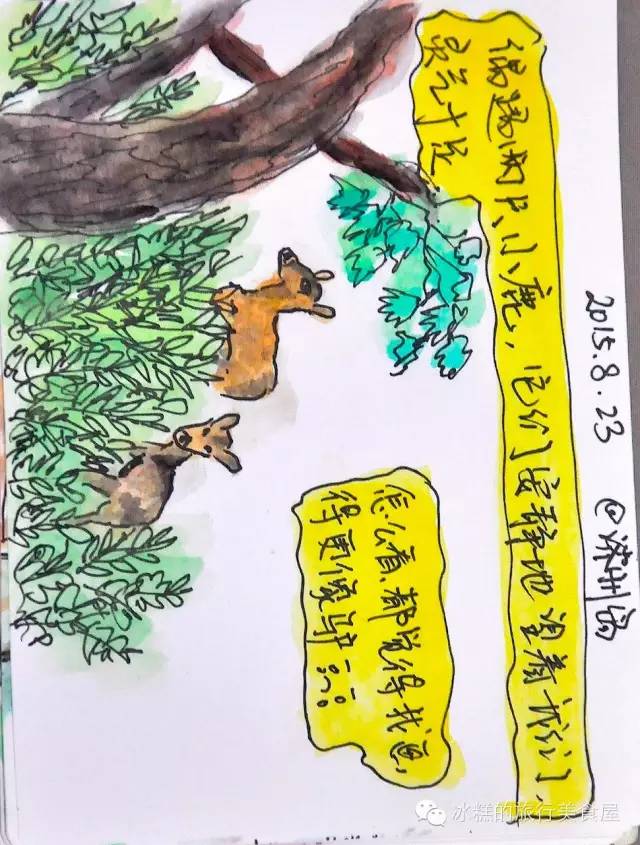 2015.8.23
偶遇两只小鹿，它们安静地望着我们，
灵气十足
怎么看、都觉得我画
得更像驴……
冰糕的旅行美食屋